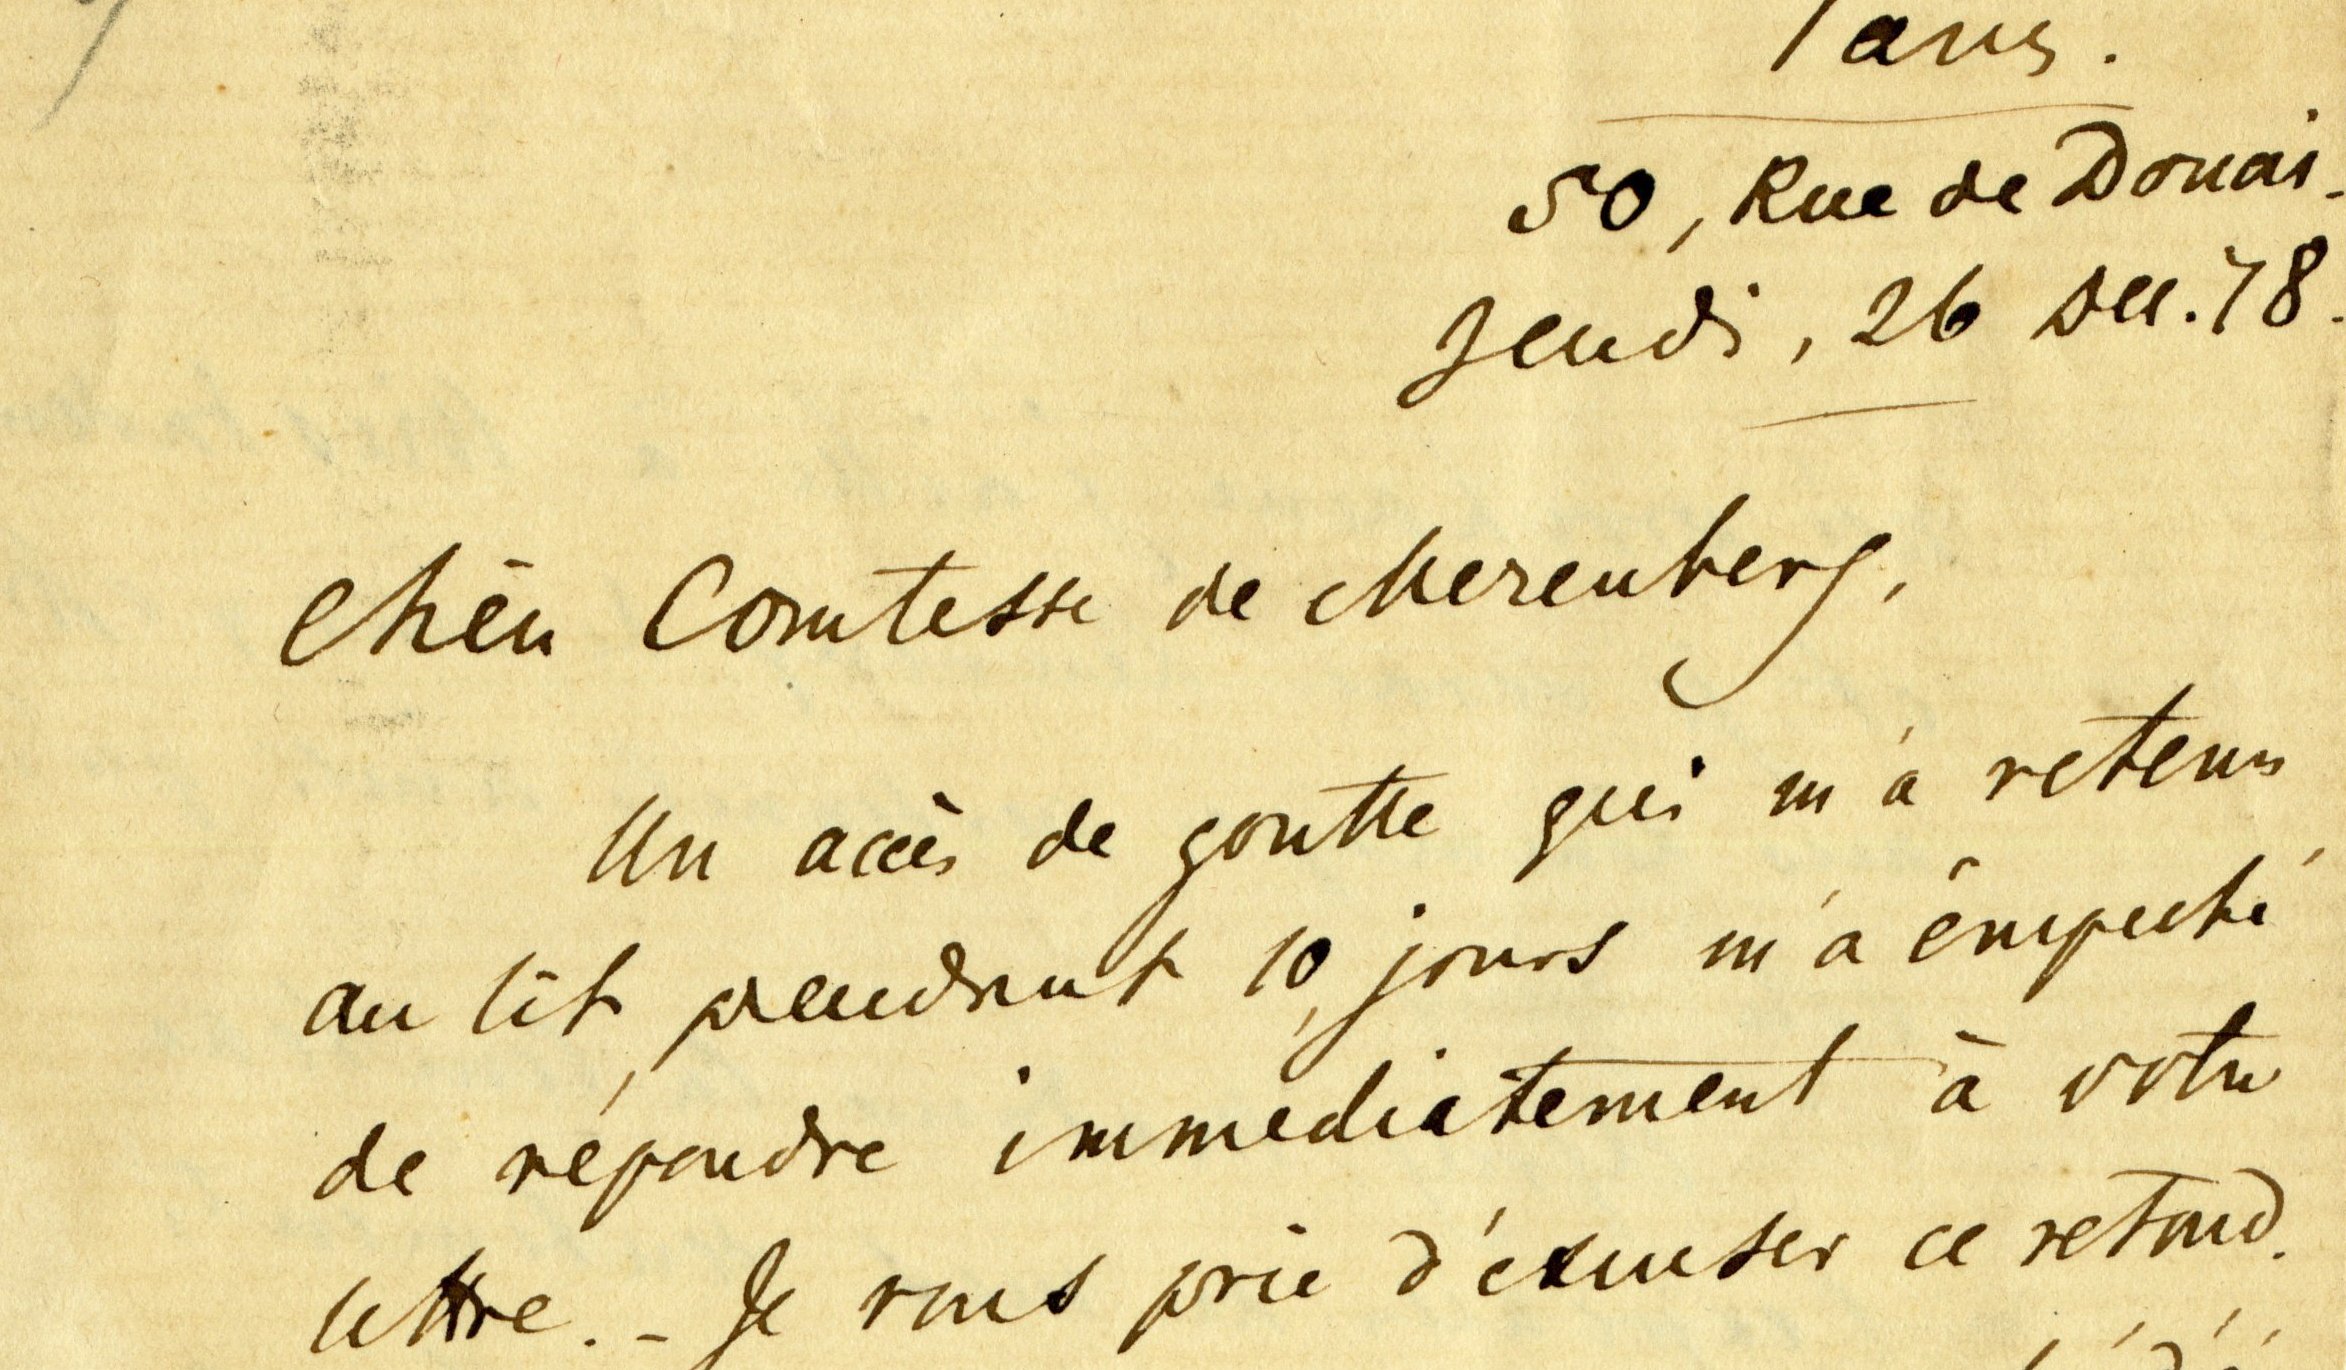 Paris.
50, Rue de Douai.
Jeudi, 26 Dec. 78.
Chère Comtesse de Merenberg,
Un accès de goutte qui m'a retenu
au lit pendant 10 jours m'a empêché
de répondre immédiatement à votre
lettre. - Je vous prie d'excuser ce retard.